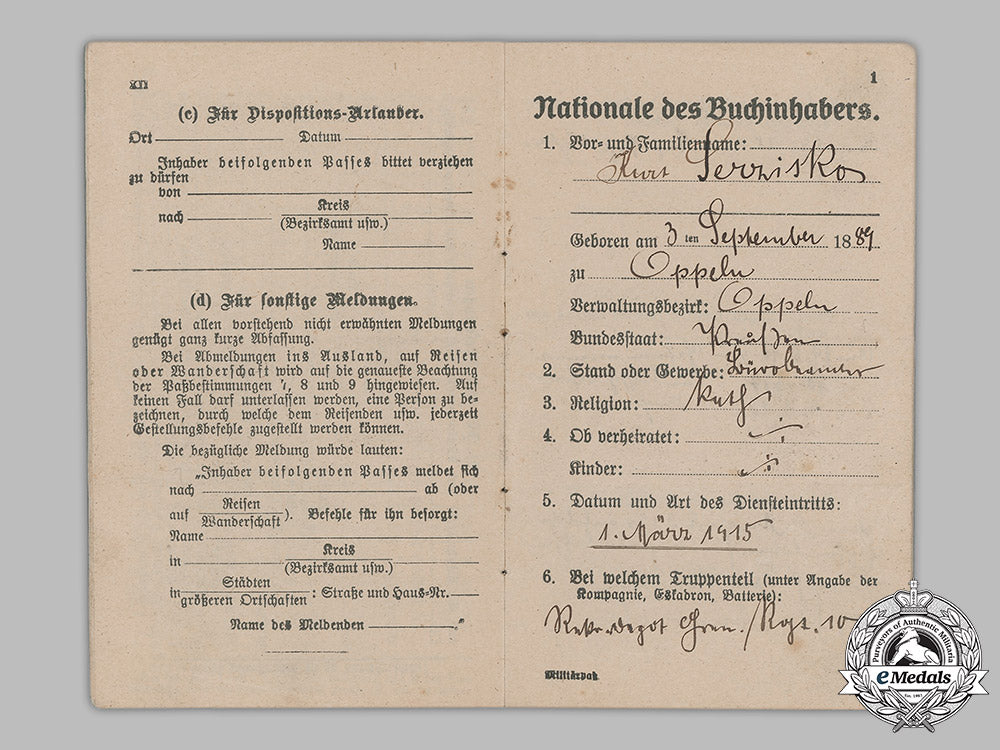 XII
(c) Für Dispositions-Urlauber.
Ort Datum
Inhaber beifolgenden Passes bittet verziehen
zu dürfen
von
nach Kreis
(Bezirksamt usw.)
Name
(d) Für sonstige Meldungen.
Bei allen vorstehend nicht erwähnten Meldungen
genügt ganz kurze Abfassung.
Bei Abmeldungen ins Ausland, auf Reisen
oder Wanderschaft wird auf die genaueste Beachtung
der Paßbestimmungen 7, 8 und 9 hingewiesen. Auf
keinen Fall darf unterlassen werden, eine Person zu be-
zeichnen, durch welche dem Reisenden usw. jederzeit
Gestellungsbefehle zugestellt werden können.
Die bezügliche Meldung würde lauten:
„Inhaber beifolgenden Passes meldet sich
nach ab (oder
auf Reisen
Wanderschaft). Befehle für ihn besorgt:
Name
in Kreis
(Bezirksamt usw.)
in Städten
größeren Ortschaften: Straße und Haus-Nr.
Name des Meldenden ."
1
Nationale des Buchinhabers.
1. Vor- und Familienname:
Kurt Serzisko
Geboren am 3ten September 1889
zu Oppeln
Verwaltungsbezirk: Oppeln
Bundesstaat: Preußen
2. Stand oder Gewerbe: Bürobeamter
3. Religion: kath
4. Ob verheiratet: ÷
Kinder: ÷
5. Datum und Art des Diensteintritts:
1. März 1915
6. Bei welchem Truppenteil (unter Angabe der
Kompagnie, Eskadron, Batterie):
Rekr.-Depot Gren./Rgt. 10
Militärpaß
Purveyors of Authentic Militaria
eMedals